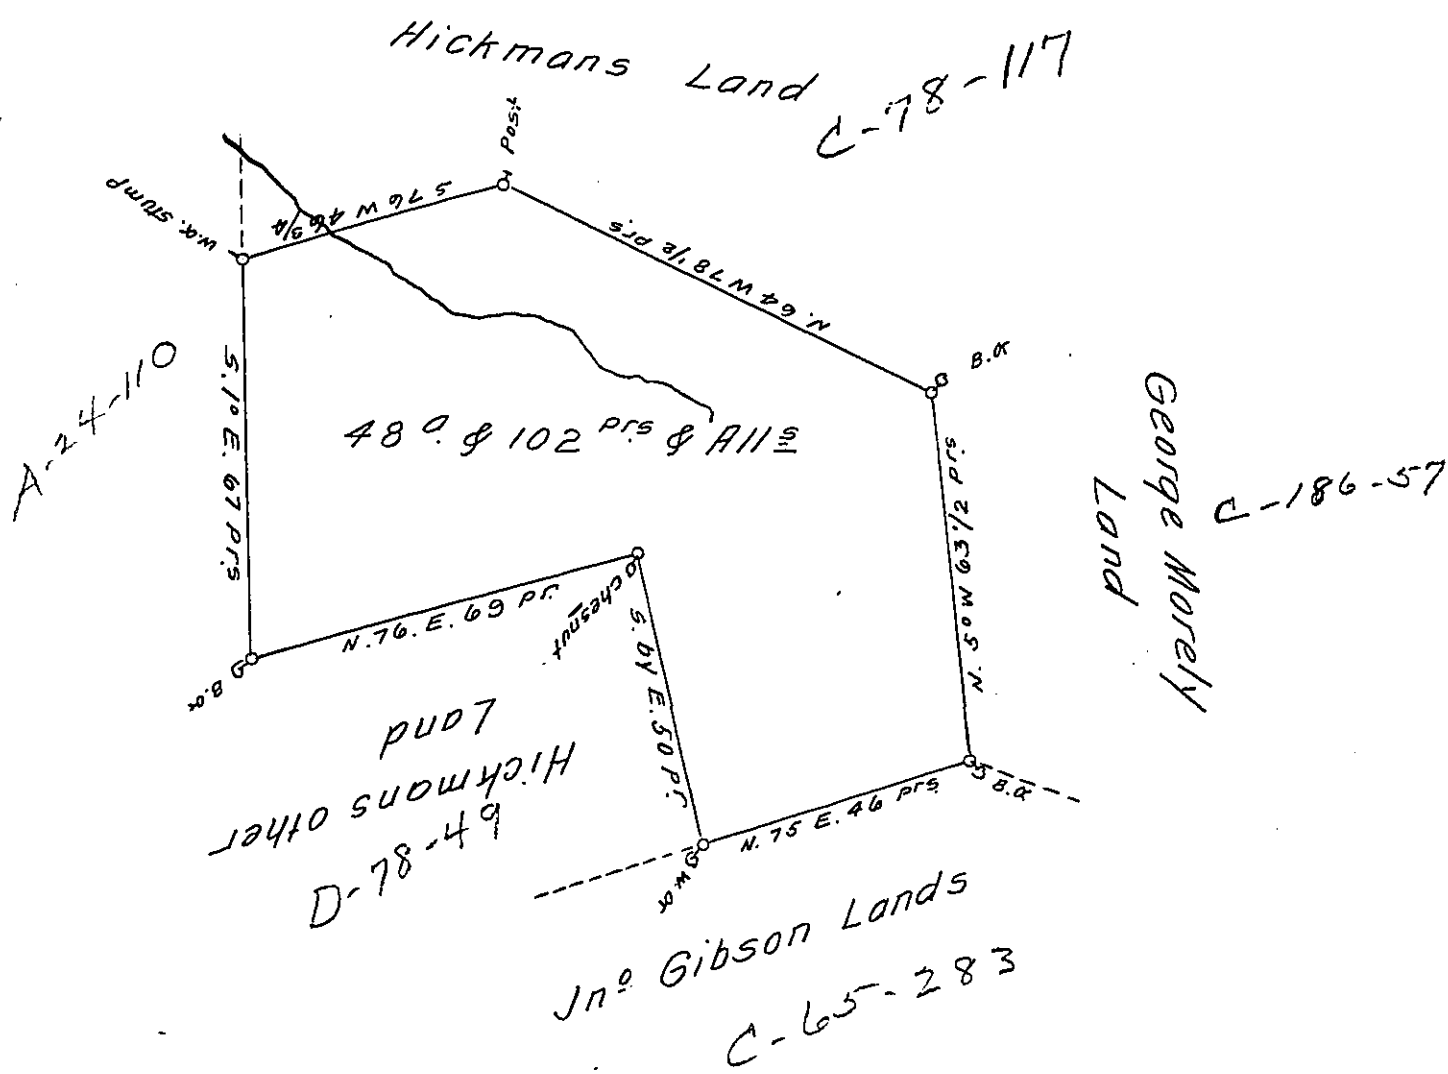 Hickmans Land
C-78-117
Post
W.o. Stump
S 76 W 46 3/4
N. 64 W 78 1/2 prs
B.o
A-24-110
S. 1° E. 67 Prs
48 a. & 102 prs & Alls
N. 5 o W 63 1/2 prs
George Morely
Land
C-186-57
N. 76. E. 69 pr.
Chesnut
S. by E. 50 Pr.
B.o
Hickmans other
Land
D-78-49
W.o
N. 75 E. 46 prs
B.o
Jno Gibson Lands
C-65-283